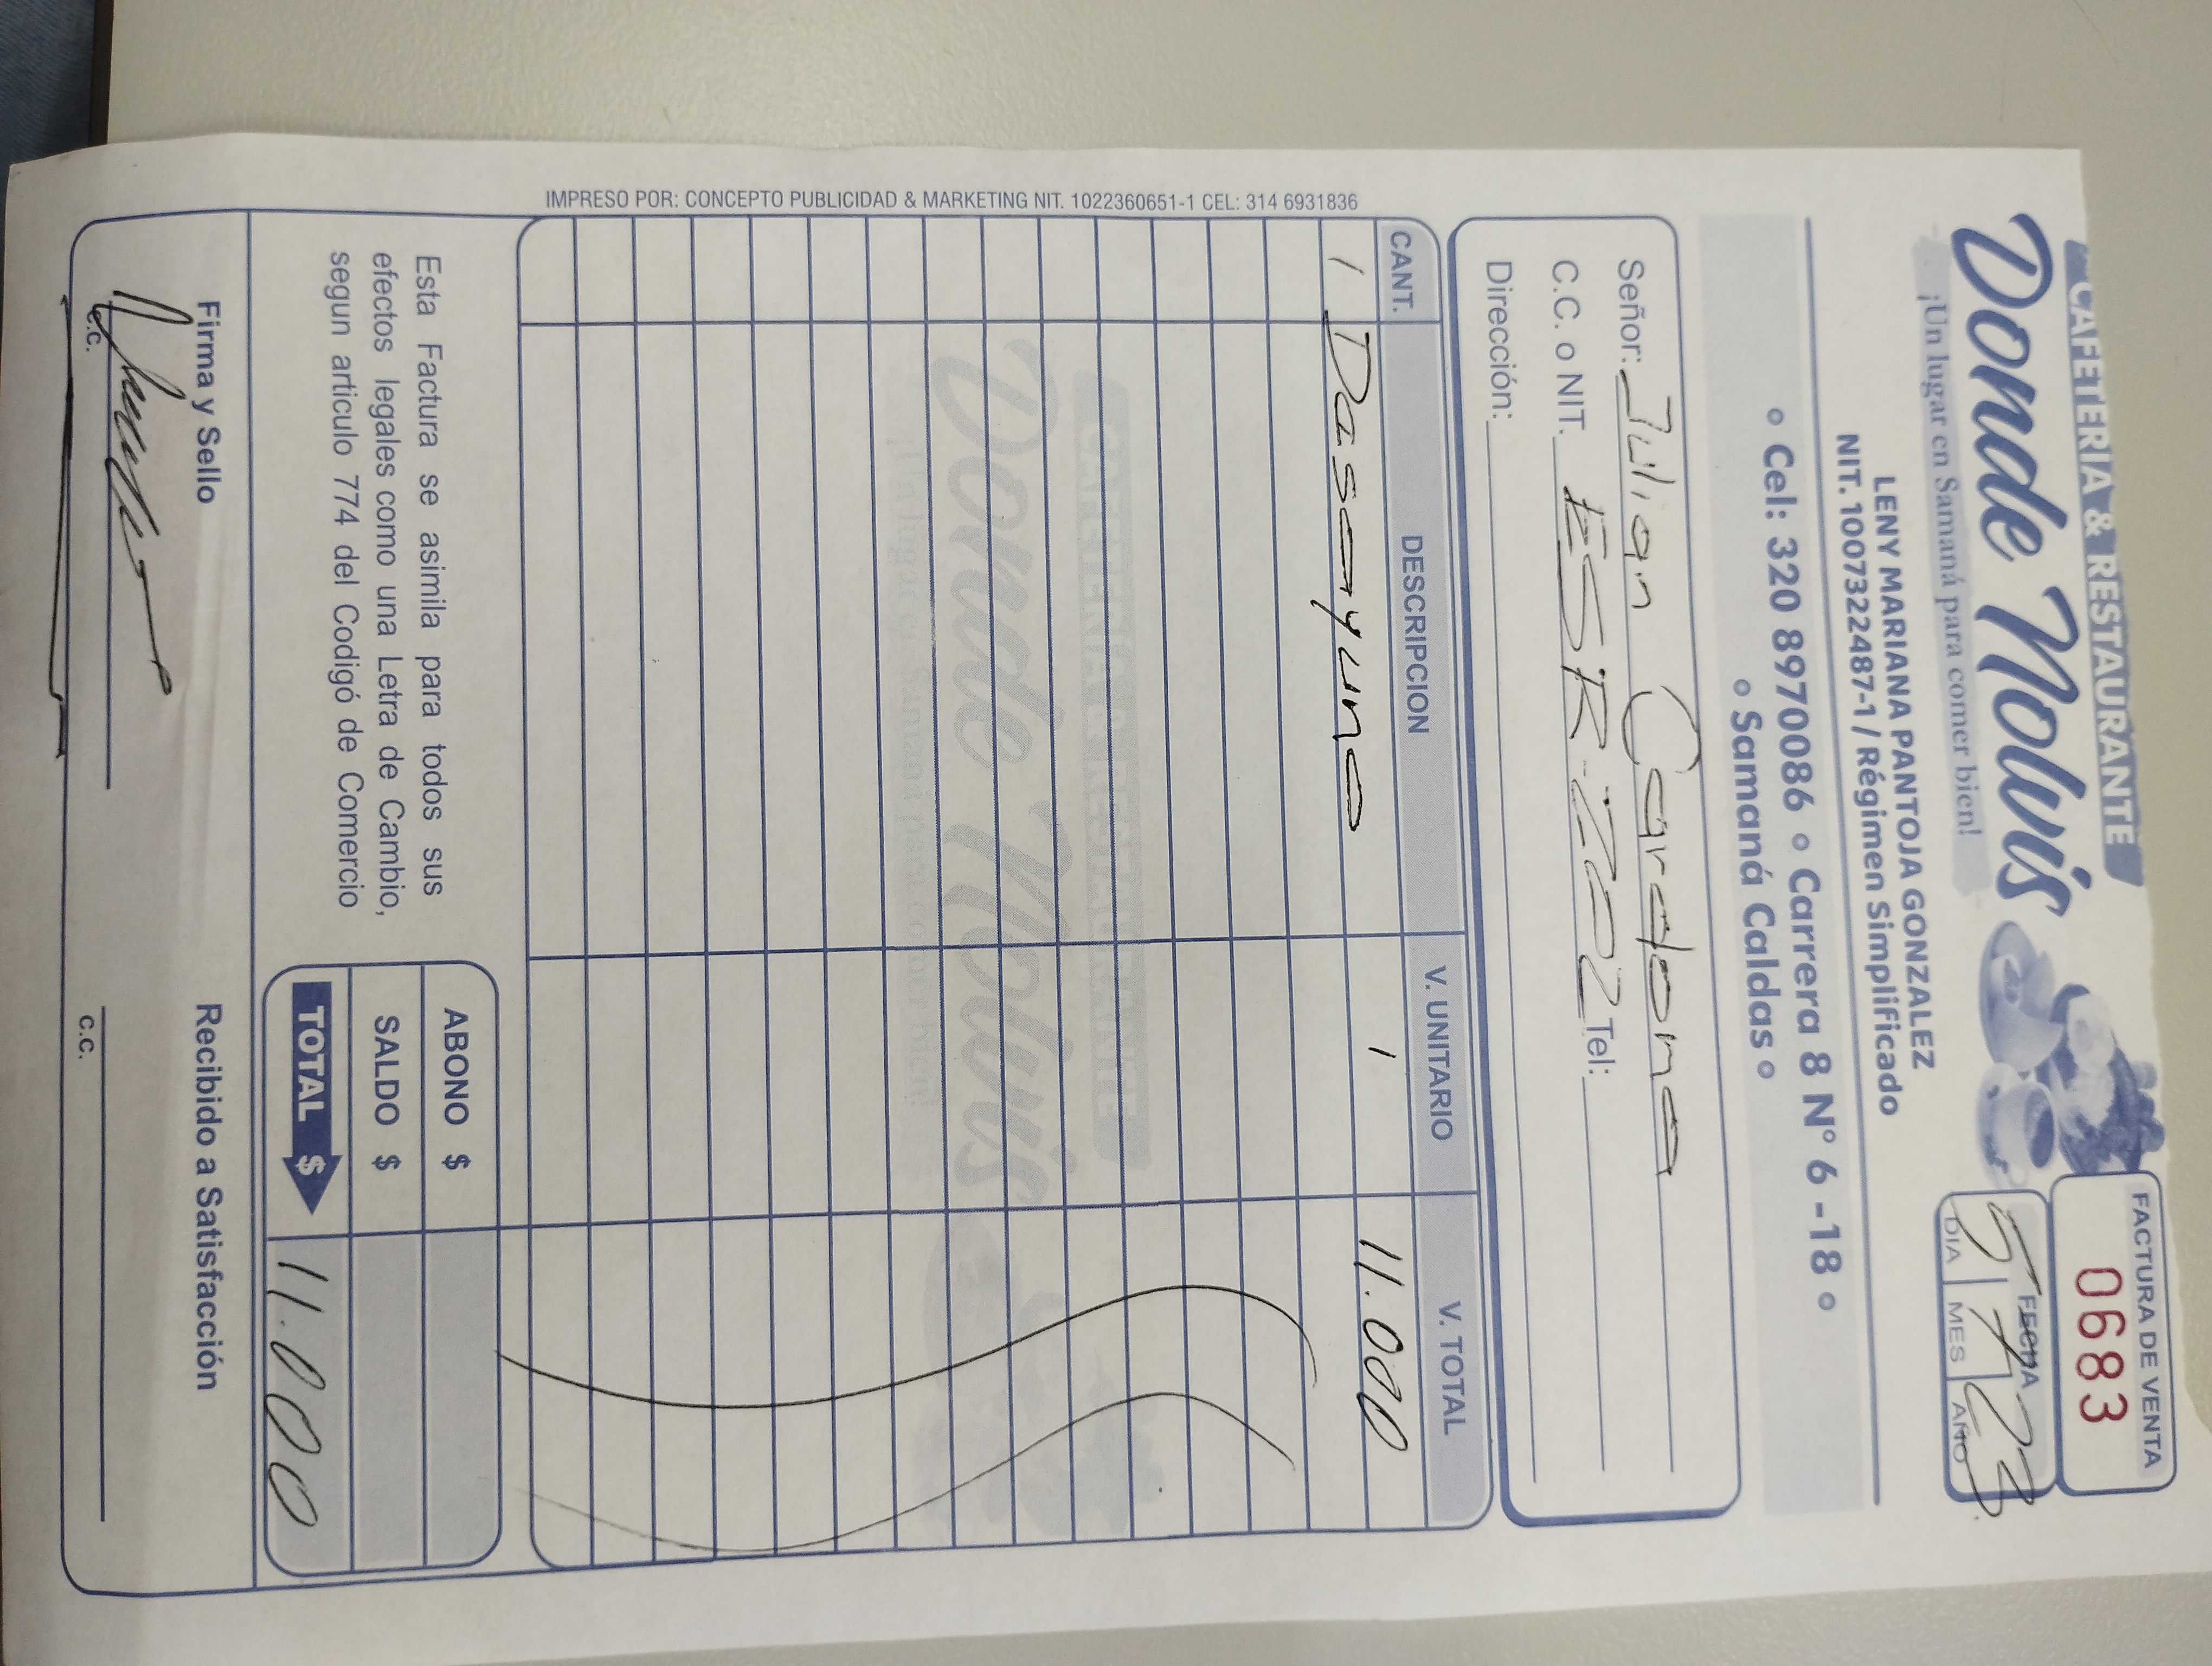 CAFETERIA & RESTAURANTE
Donde Nolvis
¡Un lugar en Samaná para comer bien!
FACTURA DE VENTA
0683
FECHA
5 7 23
DIA MES AÑO
LENY MARIANA PANTOJA GONZALEZ
NIT. 1007322487-1 / Régimen Simplificado
• Cel: 320 8970086 • Carrera 8 N° 6 -18 •
• Samaná Caldas •
Señor: Julian Cardona
C.C. o NIT. ESR-ZZ02 Tel:
Dirección:
CANT. DESCRIPCION V. UNITARIO V. TOTAL
1 Desayuno 1 11.000
CAFETERIA & RESTAURANTE
Donde Nolvis
Esta Factura se asimila para todos sus
efectos legales como una Letra de Cambio,
segun articulo 774 del Codigó de Comercio
ABONO $
SALDO $
TOTAL $ 11.000
Firma y Sello
Recibido a Satisfacción
C.C.
C.C.
IMPRESO POR: CONCEPTO PUBLICIDAD & MARKETING NIT. 1022360651-1 CEL: 314 6931836